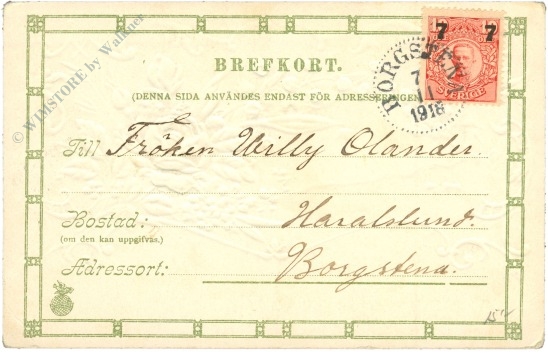 © WIMSTORE by Wallner
7 7
SVERIGE
BREFKORT.
BORGSTENA
7
11
1918
(DENNA SIDA ANVÄNDES ENDAST FÖR ADRESSERINGEN
Till Fröken Willy Olander.
Bostad: Haralslund.
(om den kan uppgifvas.)
Adressort: Borgstena.